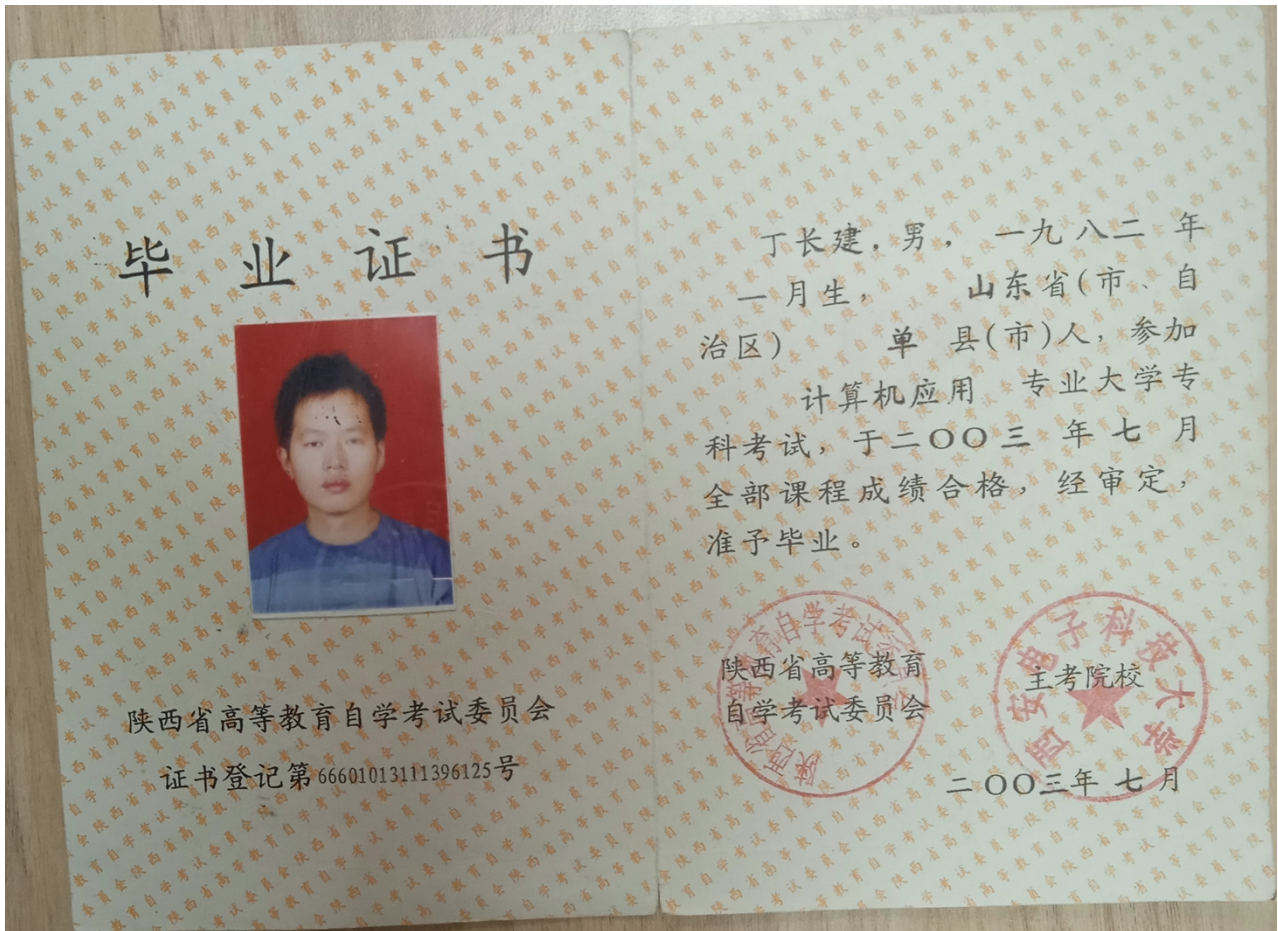 毕业证书
陕西省高等教育自学考试委员会
证书登记第66601013111396125号
丁长建，男，一九八二年
一月生，山东省(市、自
治区)单县(市)人，参加
计算机应用专业大学专
科考试，于二〇〇三年七月
全部课程成绩合格，经审定，
准予毕业。
陕西省高等教育自学考试委员会
陕西省高等教育
自学考试委员会
西安电子科技大学
主考院校
二〇〇三年七月